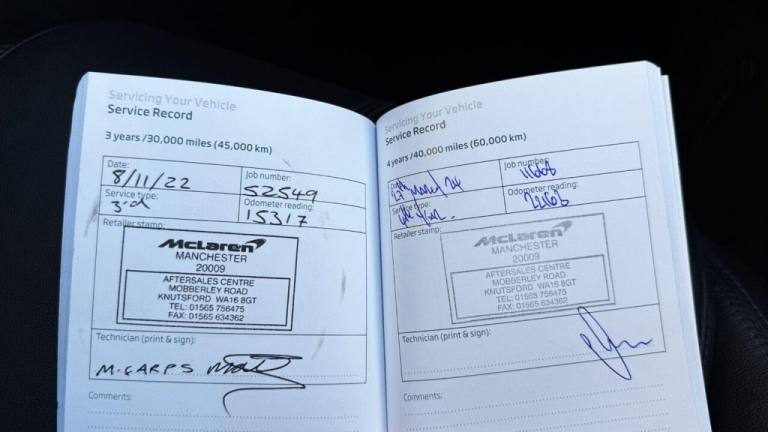 Servicing Your Vehicle
Service Record
3 years/30,000 miles (45,000 km)
Date:
8/11/22
Job number:
52549
Service type:
3rd
Odometer reading:
15317
Retailer stamp:
McLaren
MANCHESTER
20009
AFTERSALES CENTRE
MOBBERLEY ROAD
KNUTSFORD WA16 8GT
TEL: 01565 756475
FAX: 01565 634362
Technician (print & sign):
Comments:
Servicing Your Vehicle
Service Record
4 years/40,000 miles (60,000 km)
March 24
Job number:
Service type:
Odometer reading:
Retailer stamp:
McLaren
MANCHESTER
20009
AFTERSALES CENTRE
MOBBERLEY ROAD
KNUTSFORD WA16 8GT
TEL: 01565 756475
FAX: 01565 634362
Technician (print & sign):
Comments: